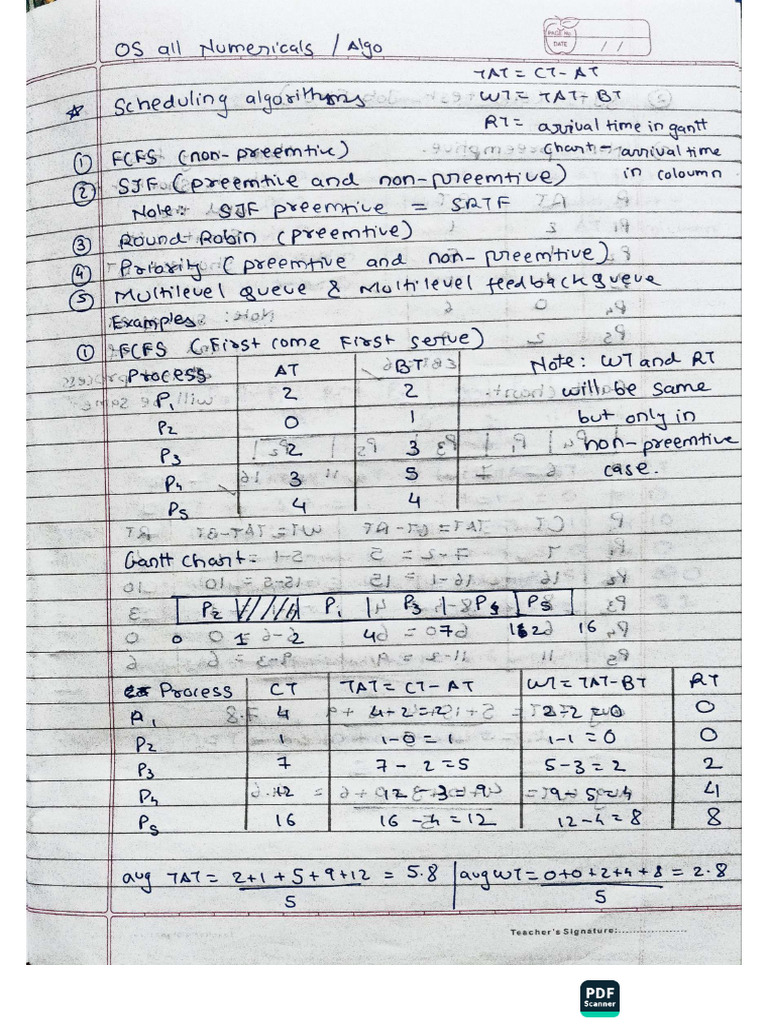 OS all Numericals / Algo
PAGE No.
DATE / /
TAT = CT - AT
☆ Scheduling algorithms
WT = TAT - BT
RT = arrival time in gantt
chart - arrival time
in coloumn
① FCFS (non-preemtive)
② SJF (preemtive and non-preemtive)
Note: SJF preemtive = SRTF
③ Round Robin (preemtive)
④ Priority (preemtive and non-preemtive)
⑤ Multilevel queue & Multilevel feedback queue
Examples
① FCFS (First come First serve)
Process AT BT
P1 2 2
P2 0 1
P3 2 3
P4 3 5
P5 4 4
Note: WT and RT
will be same
but only in
non-preemtive
case.
Gantt Chart -
P2 P1 P3 P4 P5
0 1 2 4 7 12 16
Process CT TAT = CT - AT WT = TAT - BT RT
P1 4 4-2=2 2-2=0 0
P2 1 1-0=1 1-1=0 0
P3 7 7-2=5 5-3=2 2
P4 12 12-3=9 9-5=4 4
P5 16 16-4=12 12-4=8 8
avg TAT = 2+1+5+9+12 = 5.8 avg WT = 0+0+2+4+8 = 2.8
5 5
Teacher's Signature:
PDF
Scanner